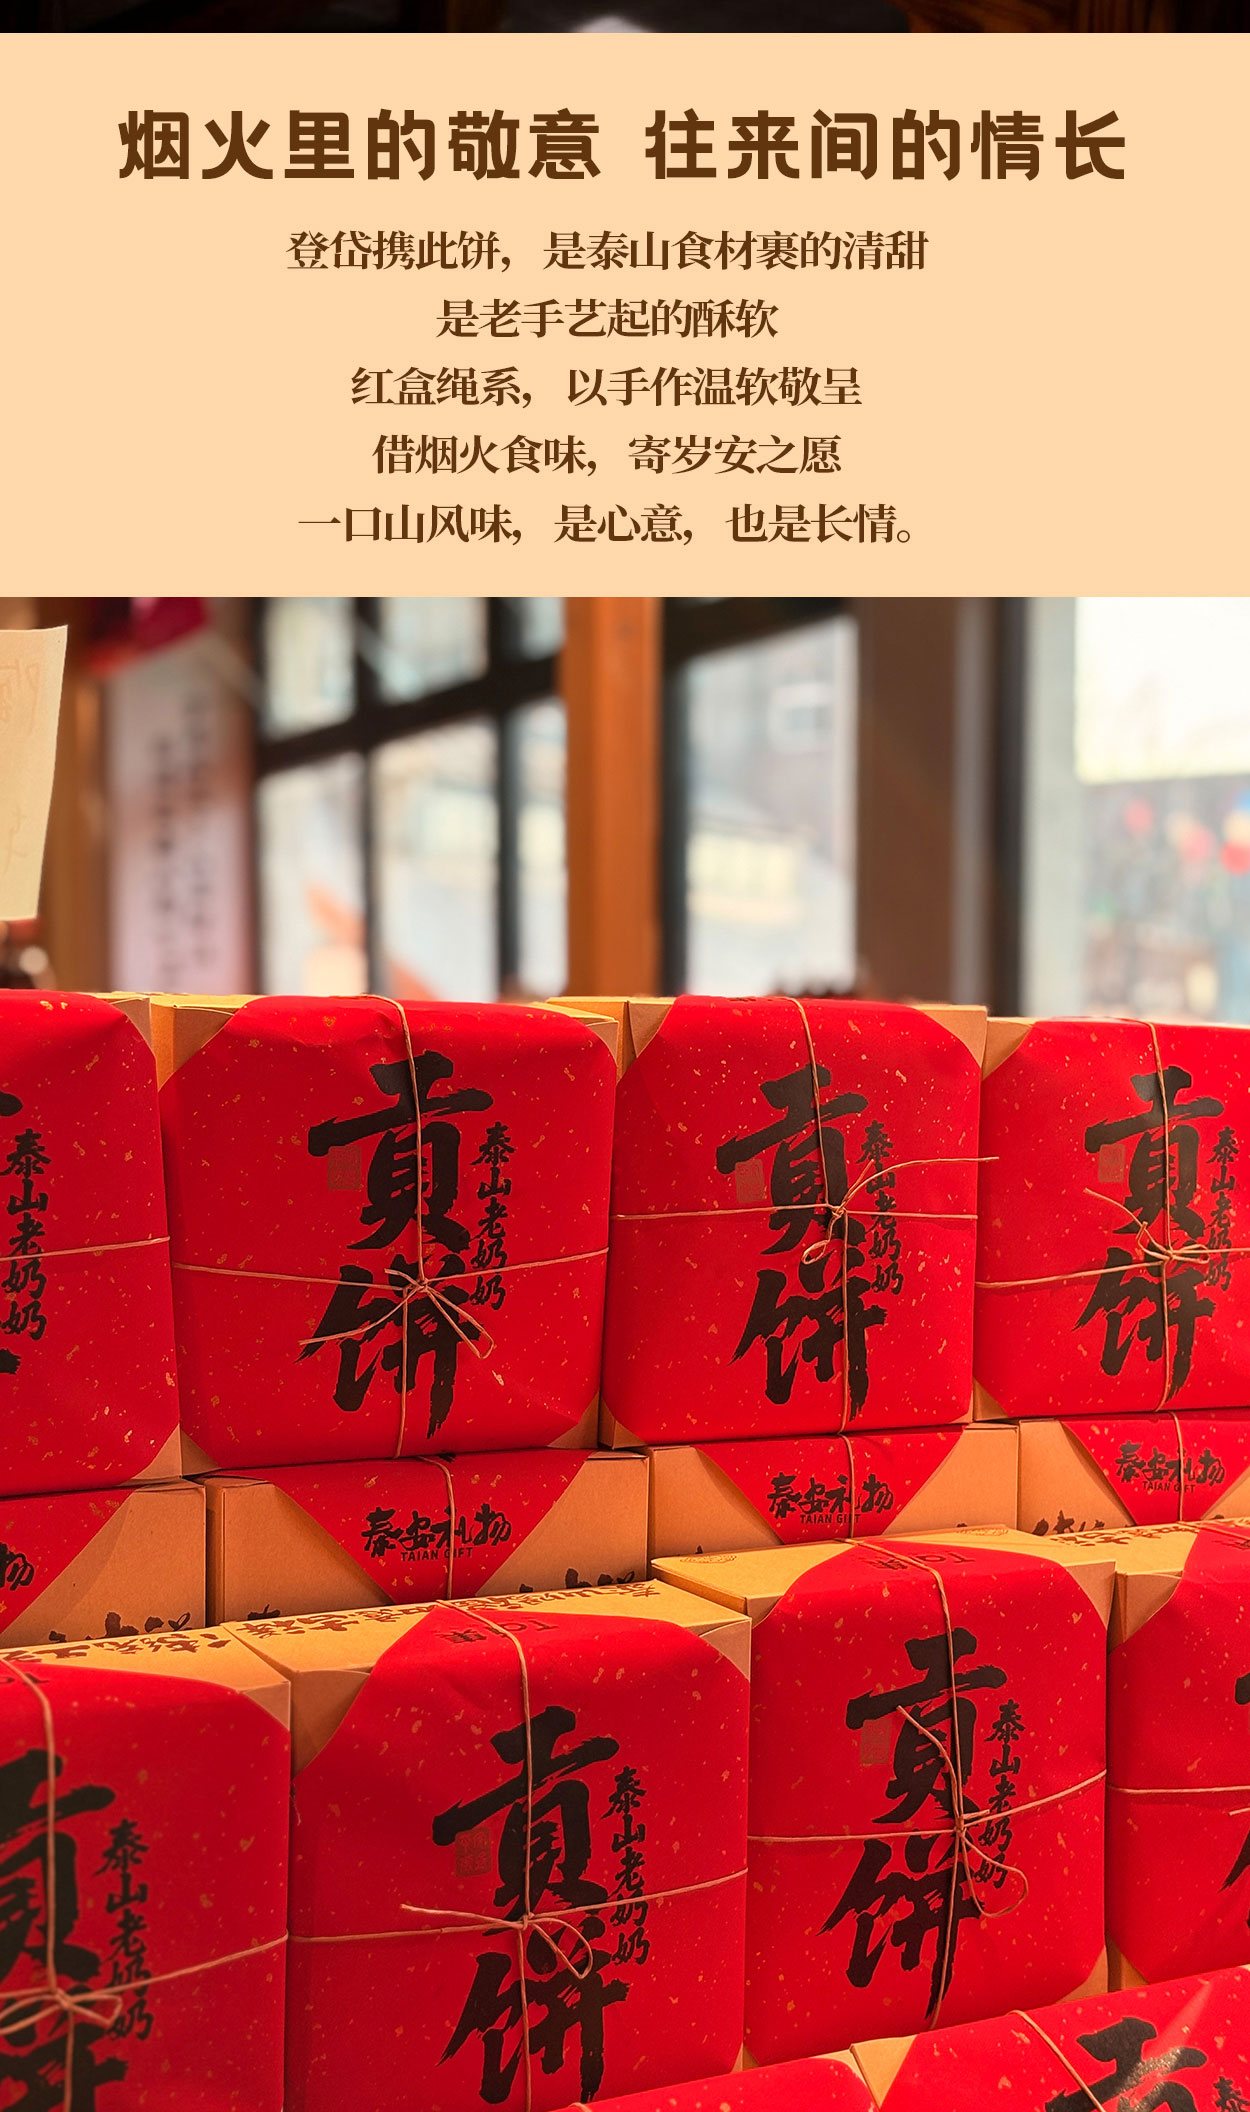 烟火里的敬意 往来间的情长
登岱携此饼，是泰山食材裹的清甜
是老手艺起的酥软
红盒绳系，以手作温软敬呈
借烟火食味，寄岁安之愿
一口山风味，是心意，也是长情。
泰山老奶奶
贡饼
泰山老奶奶
贡饼
泰山老奶奶
贡饼
泰山老奶奶
泰安礼物
TAIAN GIFT
泰安礼物
TAIAN GIFT
泰安礼物
TAIAN GIFT
物
贡饼
泰山老奶奶
贡饼
泰山老奶奶
贡饼
泰山老奶奶
贡